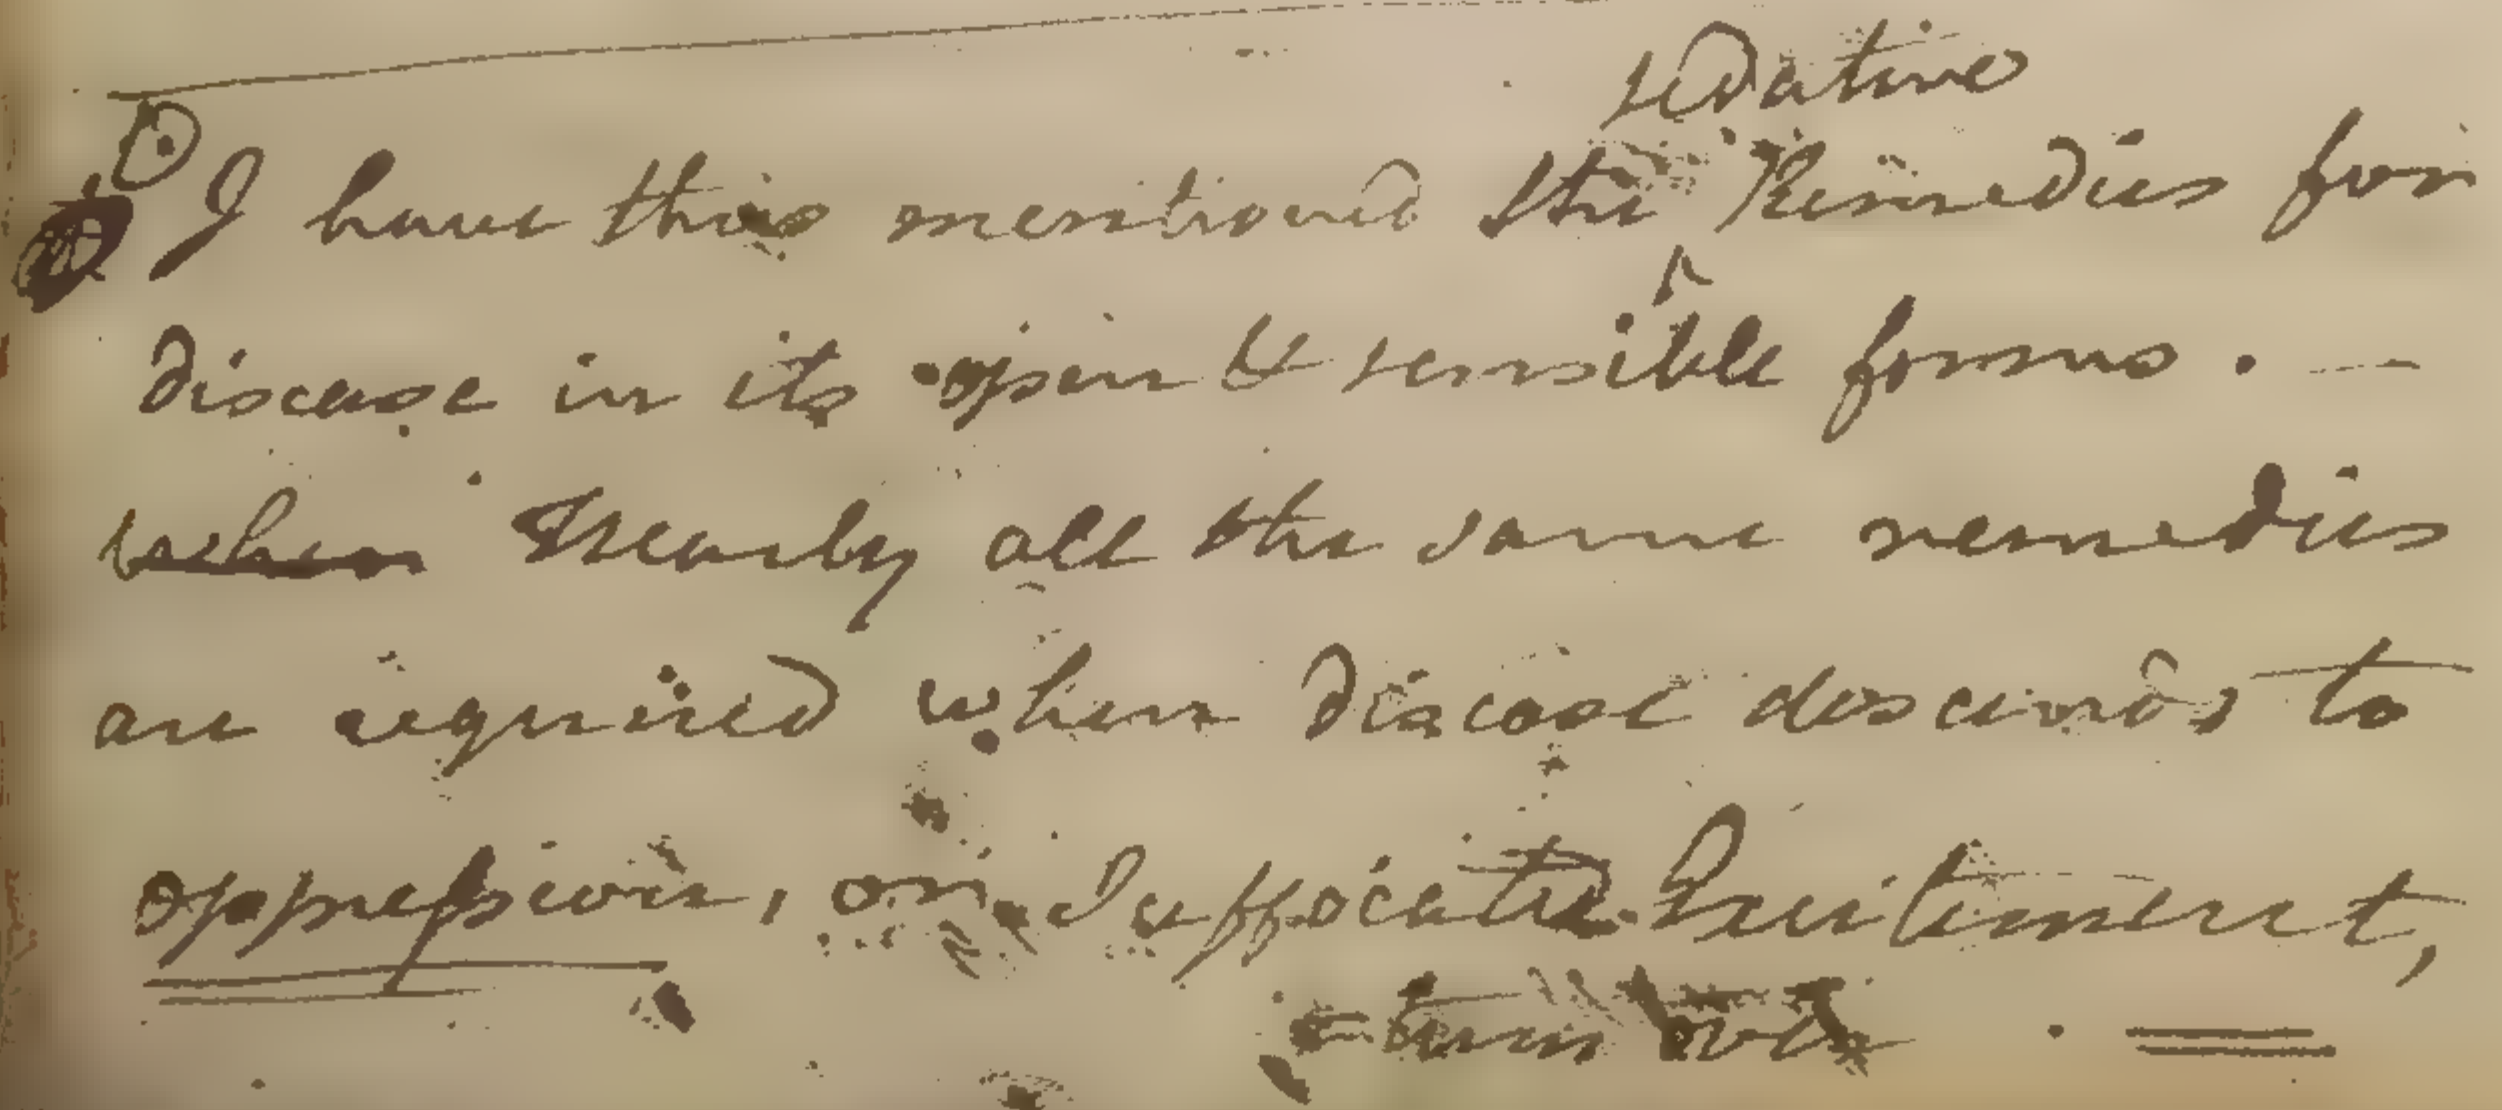 sedative
I have thus mentioned the Remedies for
disease in its open & sensible forms. —
when Nearly all the same remedies
are required when disease descends to
oppression, or Suffocated Excitement,